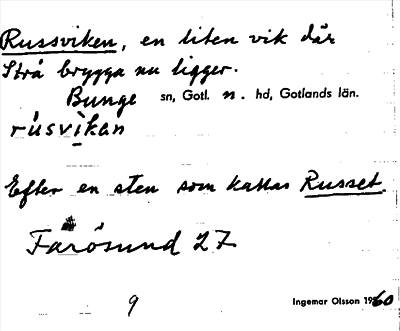 Russviken, en liten vik där
Strå brygga nu ligger.
Bunge sn, Gotl. n. hd, Gotlands län.
rúsvìkan
Efter en sten som kallas Russet.
Fårösund 27
9
Ingemar Olsson 1960